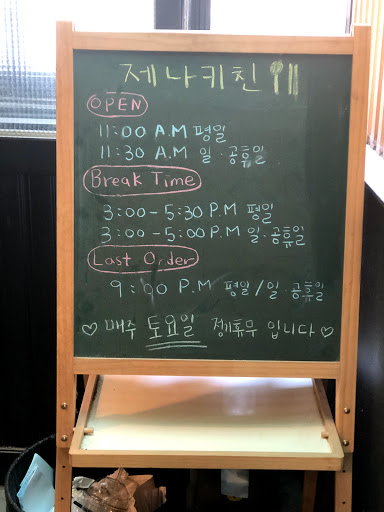 제나키친
OPEN
11:00 A.M 평일
11:30 A.M 일·공휴일
Break Time
3:00-5:30 P.M 평일
3:00-5:00 P.M 일·공휴일
Last Order
9:00 P.M 평일/일·공휴일
♡ 매주 토요일 정기휴무 입니다 ♡